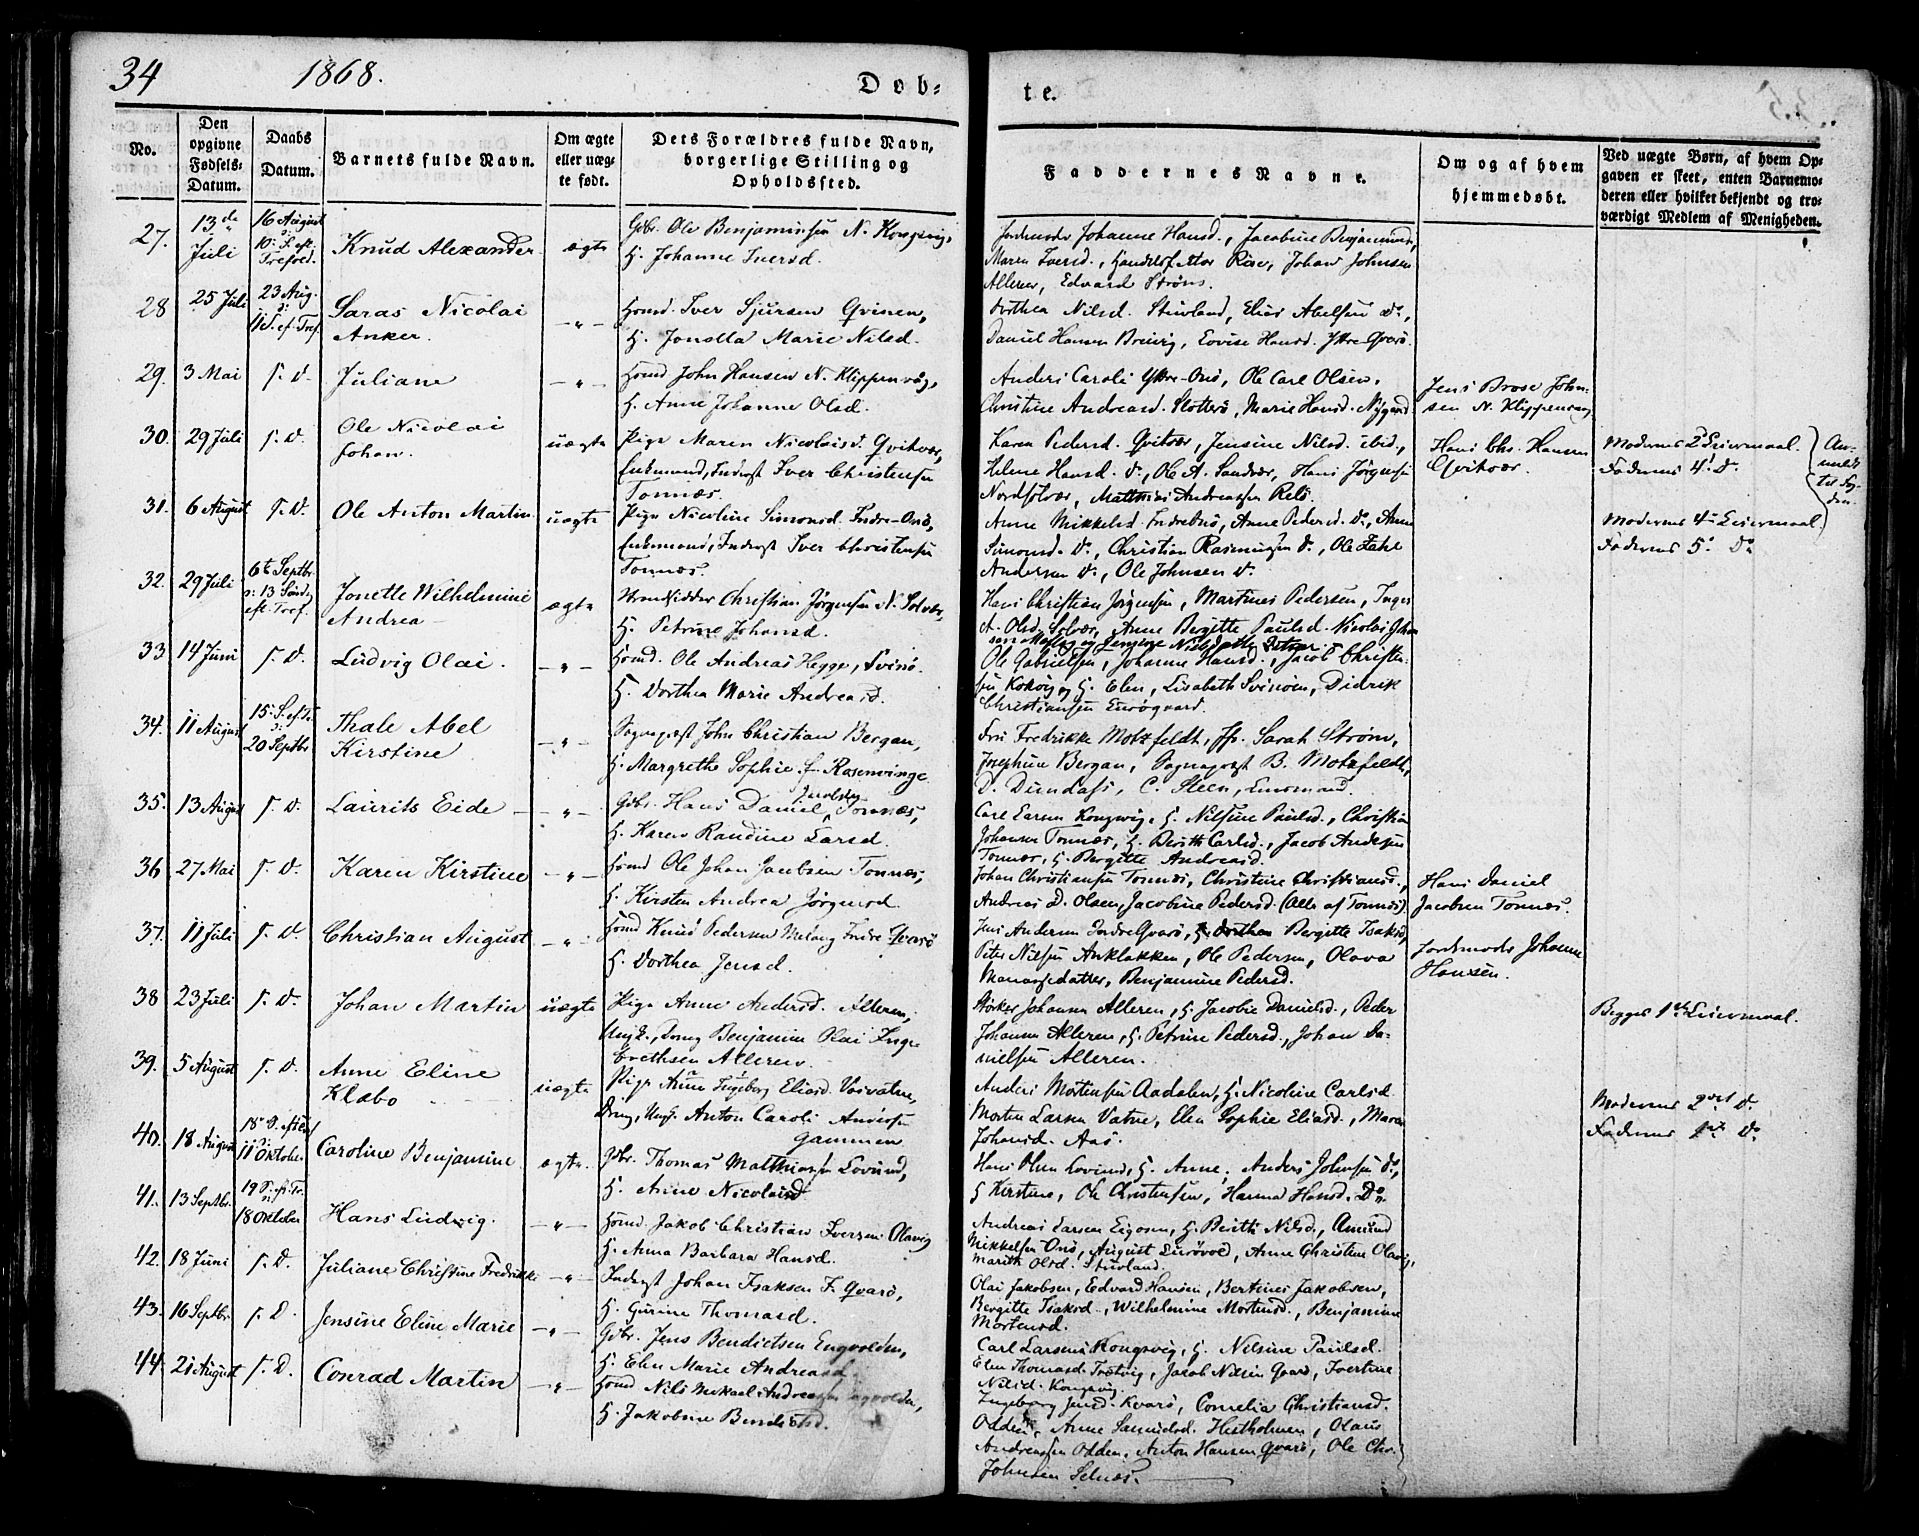 34
1868.
Døb-
te.
No.
Den opgivne Fødsels-Datum.
Daabs Datum.
Barnets fulde Navn.
Om ægte eller uæg-te født.
Dets Forældres fulde Navn, borgerlige Stilling og Opholdssted.
Faddernes Navne.
Om og af hvem hjemmedøbt.
Ved uægte Børn, af hvem Op-
gaven er skeet, enten Barnemo-
deren eller hvilket bekjendt og tro-
værdigt Medlem af Menigheden.
27. 13de Juli
16 August
10. S. eft. Trefold.
Knud Alexander ægte
Gbr. Ole Benjaminsen N. Kongsvig,
H. Johanne Iversd.
Jordemoder Johanne Hansd., Jacobine Benjaminsd.,
Maren Iversd., Johan Johnsen
Alleren, Edvard Strøm.
28 25 Juli
23 Aug.
11 S. ef. Tref.
Saras Nicolai
Anker. — " —
Huusmd. Iver Sjursen Qvinen,
H. Jonetta Marie Nilsd.
Dorthea Nilsd. Stuvland, Elias Abelsen do.,
Daniel Hansen Breivig, Lovise Hansd. Ytre-Qvarø.
29. 3 Mai s. D. Juliane — " —
Huusmd John Hansen N. Klippenvåg,
H. Anne Johanne Olsd.
Anders Caroli Ytre-Onø, Ole Carl Olsen,
Christine Andreasd. Slotterø, Marie Hansd. Nygaard
Jens Brose John-
sen N. Klippenvåg
30. 29 Juli s. D. Ole Nicolai
Johan. uægte
Pige Maren Nicolaisd. Qvitvær,
Enkemand, Inderst Iver Christensen
Tonnæs.
Karen Pedersd. Qvitvær, Jensine Nilsd. ibid.,
Helene Hansd. do., Ole A. Sandvær, Hans Jørgensen
Nordsolvær, Matthias Andreassen Relø.
Hans Chr. Hansen
Qvitvær.
Moderens 2. Leiermaal
Faderens 4. do.
An-
meldt
til Fog-
den.
31. 6 August s. D. Ole Anton Martin uægte
Pige Nicoline Simonsd. Indre-Onø,
Enkemand, Inderst Iver Christensen
Tonnæs.
Anne Mikkelsd. Indreonø, Anne Pedersd. do., Anne
Simonsd. do., Christian Rasmussen do., Ole Zahl
Andersen do., Ole Johnsen do.
Moderens 4. Leiermaal
Faderens 5. do.
32. 29 Juli
6te Septbr.
13 Sønd.
eft. Tref.
Jonette Wilhelmine
Andrea ægte
Strandsidder Christian Jørgensen N. Solvær,
H. Petrine Johansd.
Hans Christian Jørgensen, Martines Pedersen, Inger
A. Olsd. Solvær, Anne Bergitte Paulsd. Nicolai Johan
33 14 Juni s. D. Ludvig Olai. — " —
Huusmd. Ole Andreas Hegge, Svinø.
H. Dorthea Marie Andreasd.
Ole Gabrielsen, Johanne Hansd., Jacob Christen-
sen Kokvig og H. Elen, Lisabeth Svinøen, Didrik
Christiansen Lurøgaard.
34. 11 August
15. S. ef. Tr.
20 Septbr.
Thale Abel
Kirstine — " —
Sognepræst John Christian Bergan,
H. Margrethe Sophie f. Rosenvinge
Fru Fredrikke Motzfeldt, Jfr. Sarah Strøm,
Josephine Bergan, Sognepræst B. Motzfeldt,
D. Dundass, C. Steen,
35. 13 August s. D. Laurits Eide — " —
Gbr. Hans Daniel Jacobsen Tonnæs,
H. Karen Randine Larsd.
Carl Larsen Kongsvig, H. Nilsine Paulsd., Christian
Johansen Tonnæs, H. Berith Carlsd., Jacob Andersen
Tonnæs, H. Bergitte Andreasd.
36 27 Mai s. D. Karen Kirstine — " —
Huusmd Ole Johan Jacobsen Tonnæs,
H. Kirsten Andrea Jørgensd.
Johan Christiansen Tonnæs, Christine Christiansd.,
Andreas D. Olsen, Jacobine Pedersd. (Alle af Tonnæs).
Hans Daniel
Jacobsen Tonnæs.
37. 11 Juli s. D. Christian August — " —
Huusmd Knud Pedersen Melang Indre Qvarø
H. Dorthea Jensd.
Jens Andersen Indre Qvarø, H. Dorthea Bergitte Isaksd.,
Peter Nilsen Anklakken, Ole Pedersen, Olava
Manassedatter, Benjamine Pedersd.
Jordemoder Johanne
Hansen.
38 23 Juli s. D. Johan Martin uægte
Pige Anne Andersd. Alleren,
Ungk., Dreng Benjamin Olai Inge-
brethsen Alleren.
Johansen Alleren, H. Jacobie Danielsd., Peder
Johansen Alleren, H. Petrine Pedersd., Johan Da-
nielsen Alleren.
Begges 1ste Leiermaal.
39. 5 August s. D. Anne Eline
Klæbo uægte
Pige Anne Ingeborg Eliasd. Vatne,
Dreng, Ungk. Anton Caroli
Gammen
Anders Mortensen Aadalen, H. Nicoline Carlsd
Morten Larsen Vatne, Elen Sophie Eliasd., Maren
Johansd. Aas.
Moderens 2det do.
Faderens 1ste do.
40. 18 August
18de S. eft. Tref.
11 Oktober
Caroline Benjamine ægte.
Gbr. Thomas Matthiassen Lovund,
H. Anne Nicolaisd.
Hans Olsen Lovund, H. Anne, Anders Johnsen do.,
H Kirstine, Ole Christensen, Hanna Hansd. Do.
41. 13 Septbr.
19 S. eft. Tr.
18 Oktober
Hans Ludvig. — " —
Huusmd. Jakob Christian Iversen Olavig
H. Anna Barbara Hansd.
Andreas Larsen Eigosen, H. Berith Nilsd., Amund
Mikkelsen Onø, August Lurøvold, Anne Christine Olavig,
Marith Olsd. Stuvland.
42. 18 Juni s. D. Juliane Christine Fredrikke — " —
Inderst Johan Isaksen I. Qvarø,
H. Gurine Thomasd.
Olai Jakobsen, Edvard Hansen, Bertines Jakobsen,
Bergitte Isaksd., Wilhelmine Mortensd., Benjamine
Mortensd.
43. 16 Septbr. s. D. Jensine Eline Marie — " —
Gbr. Jens Bendictsen Engvolden,
H. Elen Marie Andreasd.
Carl Larsen Kongsvig, H. Nilsine Paulsd.
Elen Thomasd., Jacob Nilsen Qvarø, Ivertine
Nilsd. Kongsvig.
44. 21 August s. D. Conrad Martin — " —
Huusmd Nils Mikael Andreassen Engvolden,
H. Jakobine Bendictsd.
Ingeborg Jensd. Kvarø, Cornelia Christiansd.
Odden, Anne Samuelsd. Hestholmen, Olaus
Andreassen Odden, Anton Hansen Qvarø, Ole Chr.
Johnsen Selnæs.